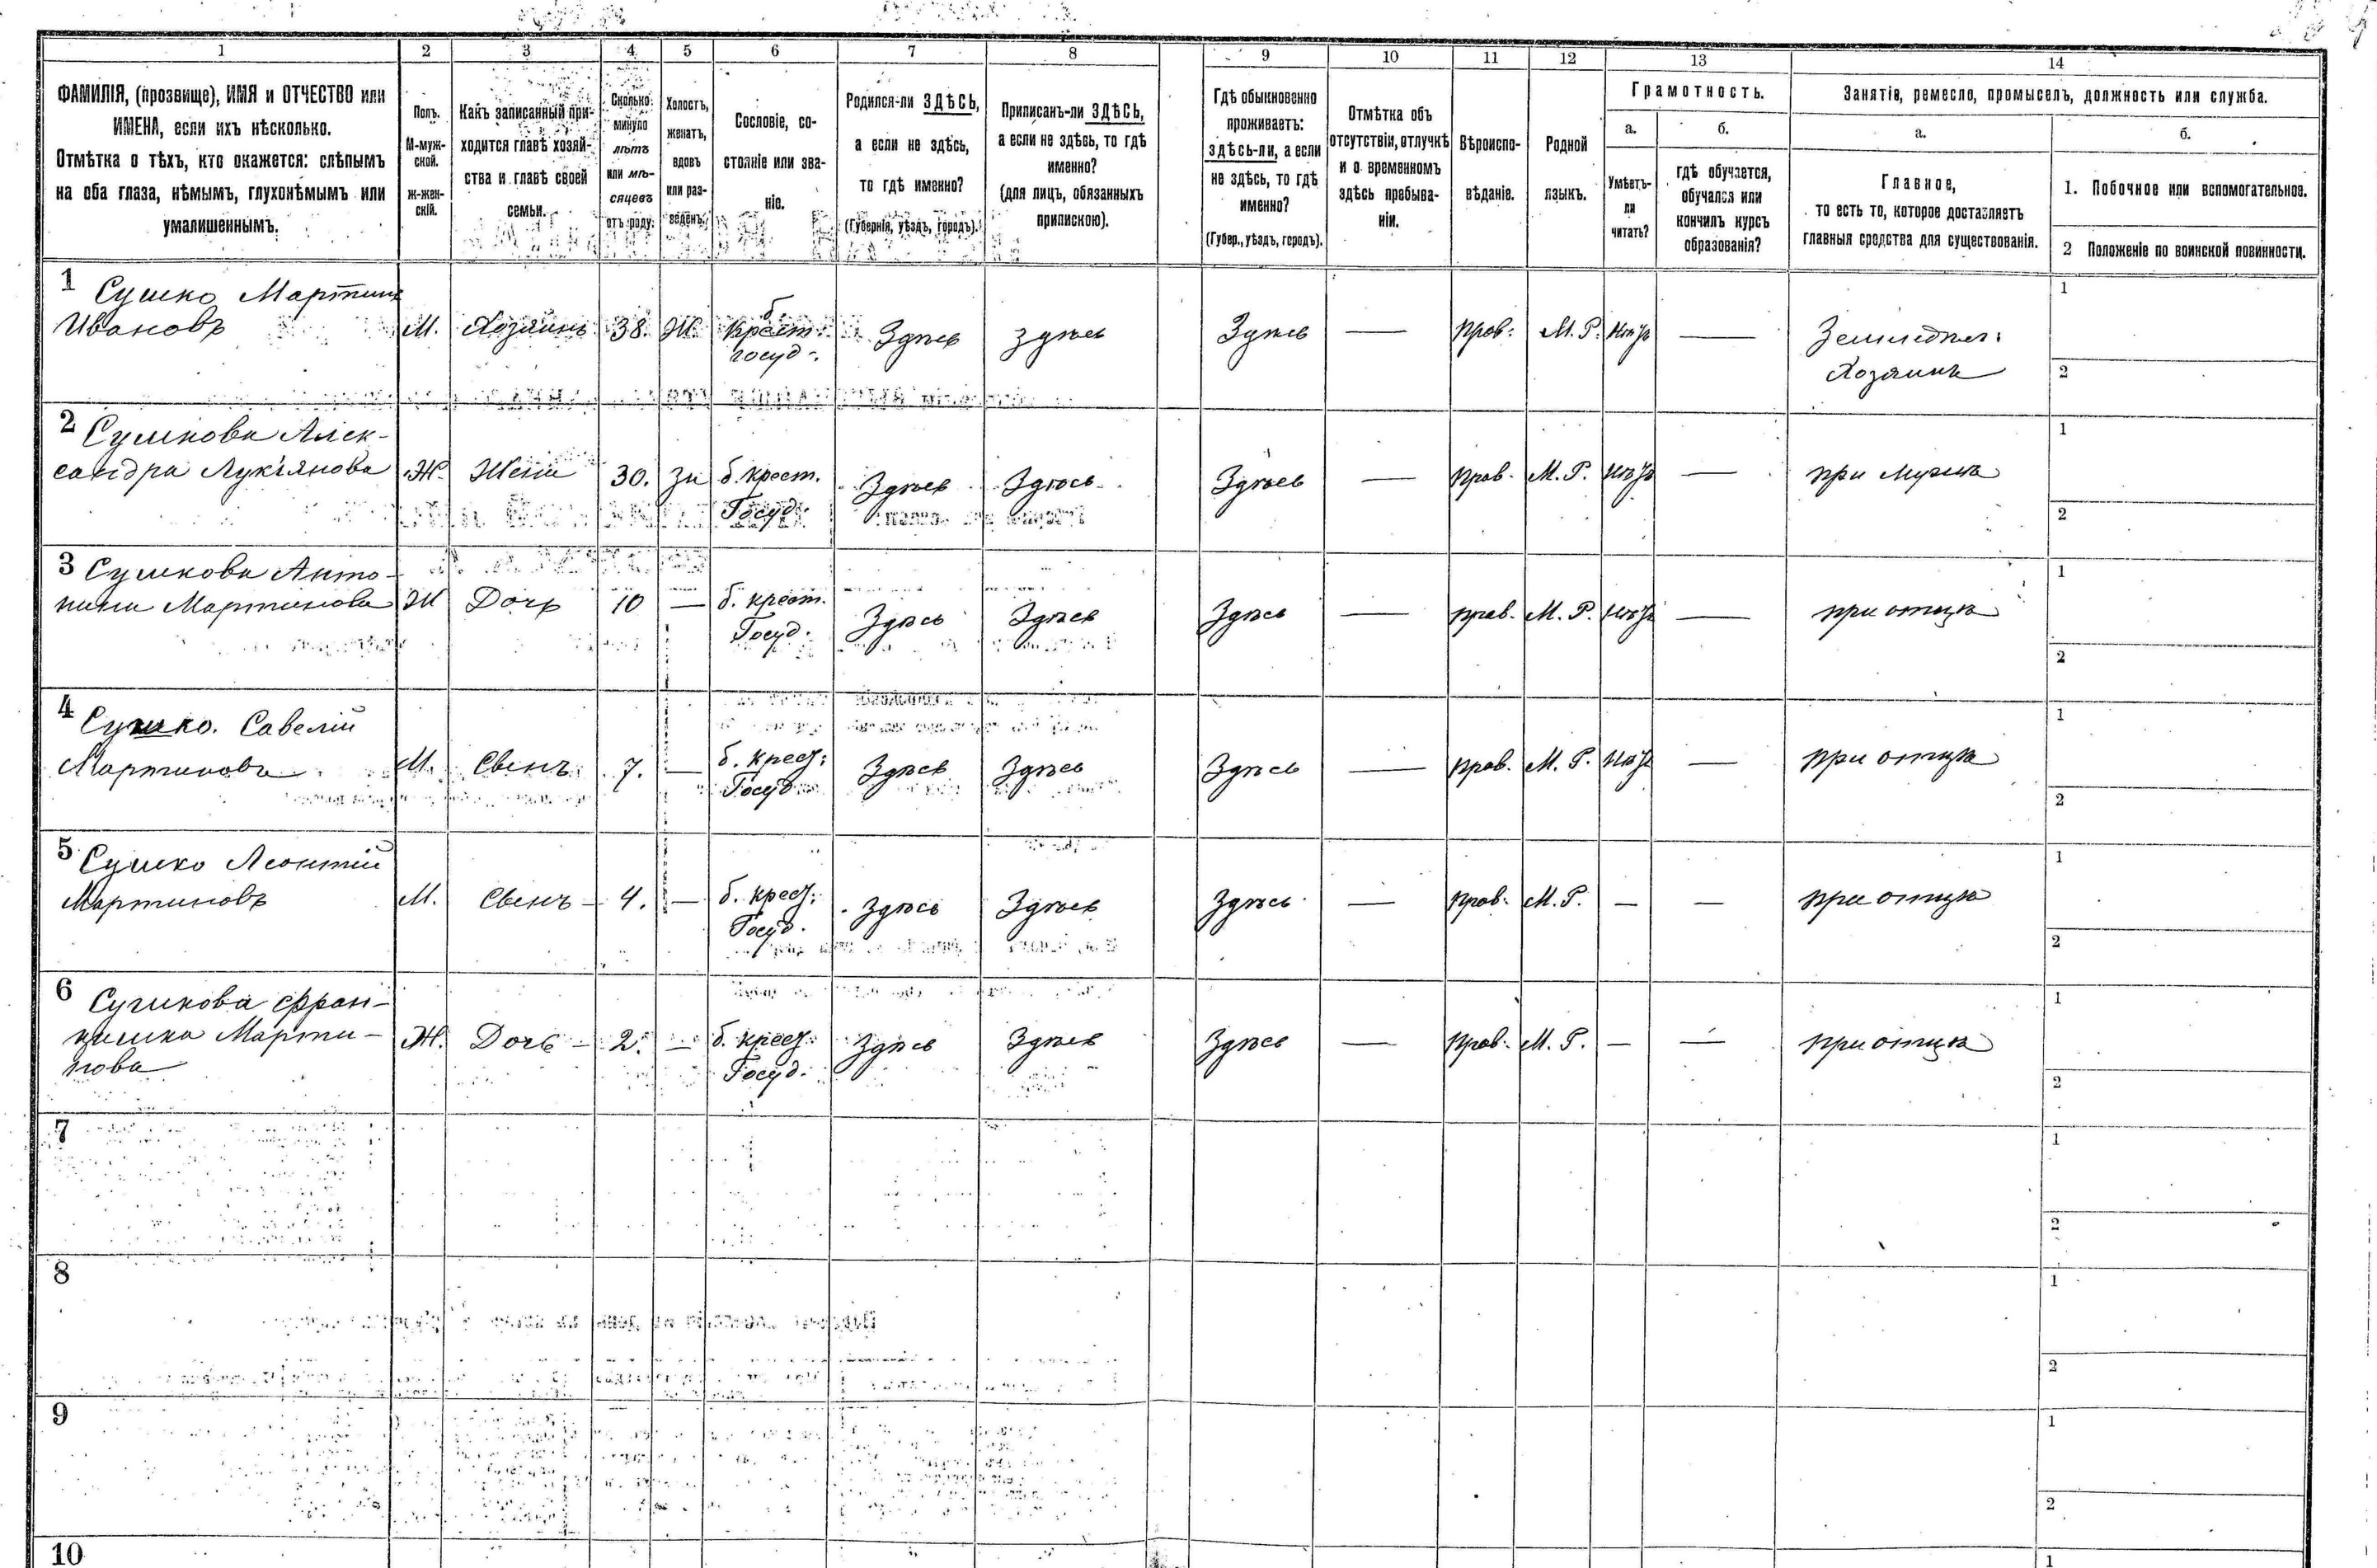 1 2 3 4 5 6 7 8 9 10 11 12 13 14
ФАМИЛІЯ, (прозвище), ИМЯ и ОТЧЕСТВО или
ИМЕНА, если ихъ нѣсколько.
Отмѣтка о тѣхъ, кто окажется: слѣпымъ
на оба глаза, нѣмымъ, глухонѣмымъ или
умалишеннымъ.
Полъ.
М-муж-
ской.
ж-жен-
скій.
Какъ записанный при-
ходится главѣ хозяй-
ства и главѣ своей
семьи.
Сколько
минуло
лѣтъ
или мѣ-
сяцевъ
отъ роду.
Холостъ,
женатъ,
вдовъ
или раз-
веденъ.
Сословіе, со-
стояніе или зва-
ніе.
Родился-ли ЗДѢСЬ,
а если не здѣсь,
то гдѣ именно?
(Губернія, уѣздъ, городъ).
Приписанъ-ли ЗДѢСЬ,
а если не здѣсь, то гдѣ
именно?
(для лицъ, обязанныхъ
припискою).
Гдѣ обыкновенно
проживаетъ:
здѣсь-ли, а если
не здѣсь, то гдѣ
именно?
(Губер., уѣздъ, городъ).
Отмѣтка объ
отсутствіи, отлучкѣ
и о временномъ
здѣсь пребыва-
ніи.
Вѣроиспо-
вѣданіе.
Родной
языкъ.
Грамотность.
а.
Умѣетъ-
ли
читать?
б.
гдѣ обучается,
обучался или
кончилъ курсъ
образованія?
Занятія, ремесло, промыселъ, должность или служба.
а.
Главное,
то есть то, которое доставляетъ
главныя средства для существованія.
б.
1. Побочное или вспомогательное.
2 Положеніе по воинской повинности.
1 Сушко Мартинъ
Ивановъ М. Хозяинъ 38. Ж. б. крест. Здѣсь здѣсь Здѣсь — прав. М. Р. нѣтъ — Земледѣл. 1
госуд. Хозяинъ 2
2 Сушкова Алек-
сандра Лукіянова Ж. Жена 30. за б. крест. Здѣсь Здѣсь Здѣсь — прав. М. Р. нѣтъ — при мужѣ 1
Госуд. 2
3 Сушкова Анто-
нина Мартинова Ж Дочь 10 — б. крест. Здѣсь Здѣсь Здѣсь — прав. М. Р. нѣтъ — при отцѣ 1
Госуд. 2
4 Сушко. Савелій
Мартиновъ М. Свенъ 7. — б. крест. Здѣсь Здѣсь Здѣсь — прав. М. Р. нѣтъ — при отцѣ 1
Госуд 2
5 Сушко Леонтій
Мартиновъ М. Свенъ — 4. — б. крест. здѣсь Здѣсь Здѣсь — прав. М. Р. — — при отцѣ 1
Госуд. 2
6 Сушкова Фран-
цишка Марти-
нова Ж. Дочь — 2. — б. крест. Здѣсь Здѣсь Здѣсь — прав. М. Р. — — при отцѣ 1
Госуд. 2
7 1
2
8 1
2
9 1
2
10 1